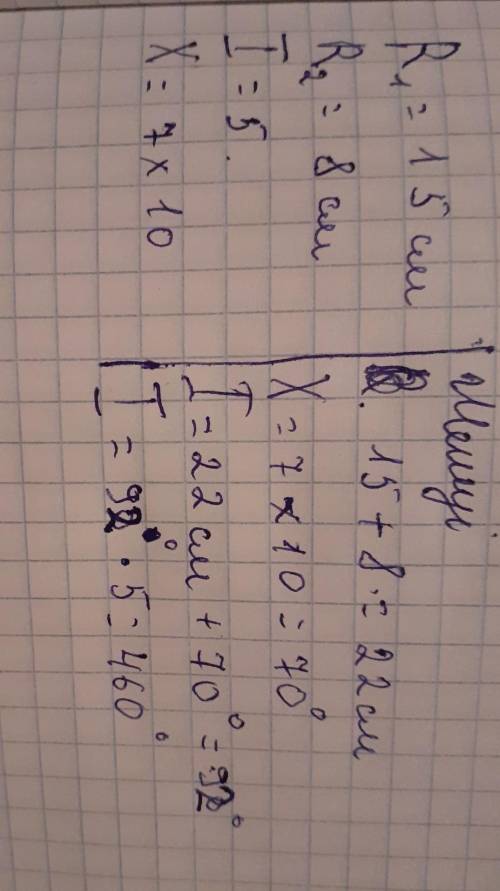 R₁ = 15 см
R₂ = 8 см
I = 5.
X = 7 x 10
Шешуі
15 + 8 = 22 см
X = 7 x 10 = 70°
I = 22 см + 70° = 92°
I = 92° · 5 = 460°